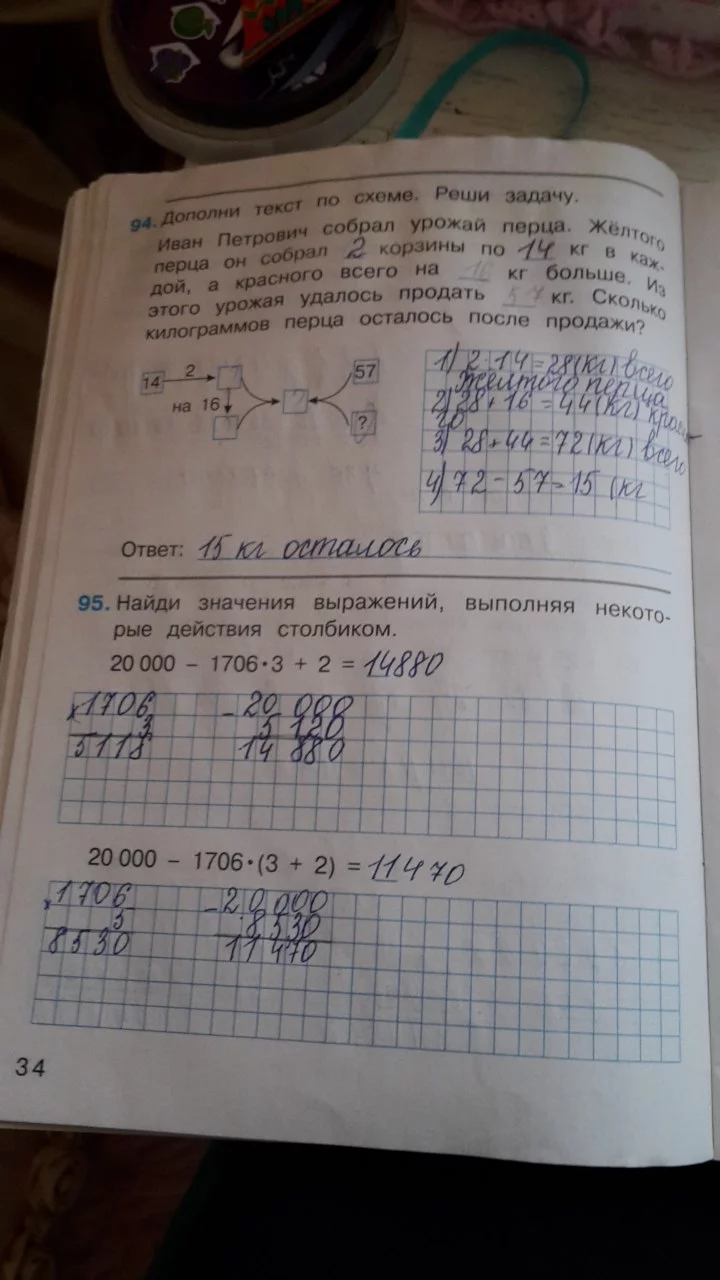 94. Дополни текст по схеме. Реши задачу.
Иван Петрович собрал урожай перца. Жёлтого
перца он собрал 2 корзины по 14 кг в каж-
дой, а красного всего на 16 кг больше. Из
этого урожая удалось продать 57 кг. Сколько
килограммов перца осталось после продажи?
14 2 ? 57
на 16 ?
1) 2·14=28(кг) всего
желтого перца
2) 28+16=44(кг) красно
го
3) 28+44=72(кг) всего
4) 72-57=15 (кг
Ответ: 15 кг осталось
95. Найди значения выражений, выполняя некото-
рые действия столбиком.
20 000 − 1706·3 + 2 = 14880
×1706 −20 000
3 5 120
5118 14 880
20 000 − 1706·(3 + 2) = 11470
×1706 −20000
5 8530
8530 11 470
34